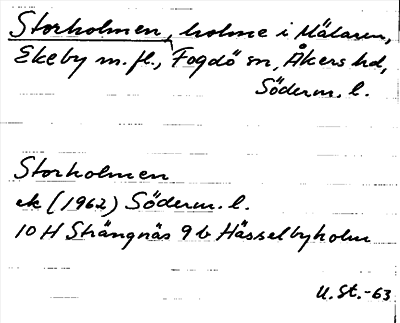 Storholmen, holme i Mälaren,
Ekeby m.fl., Fogdö sn, Åkers hd,
Söderm. l.
Storholmen
ek (1962) Söderm. l.
10 H Strängnäs 9 b Hässelbyholm
U. St. -63